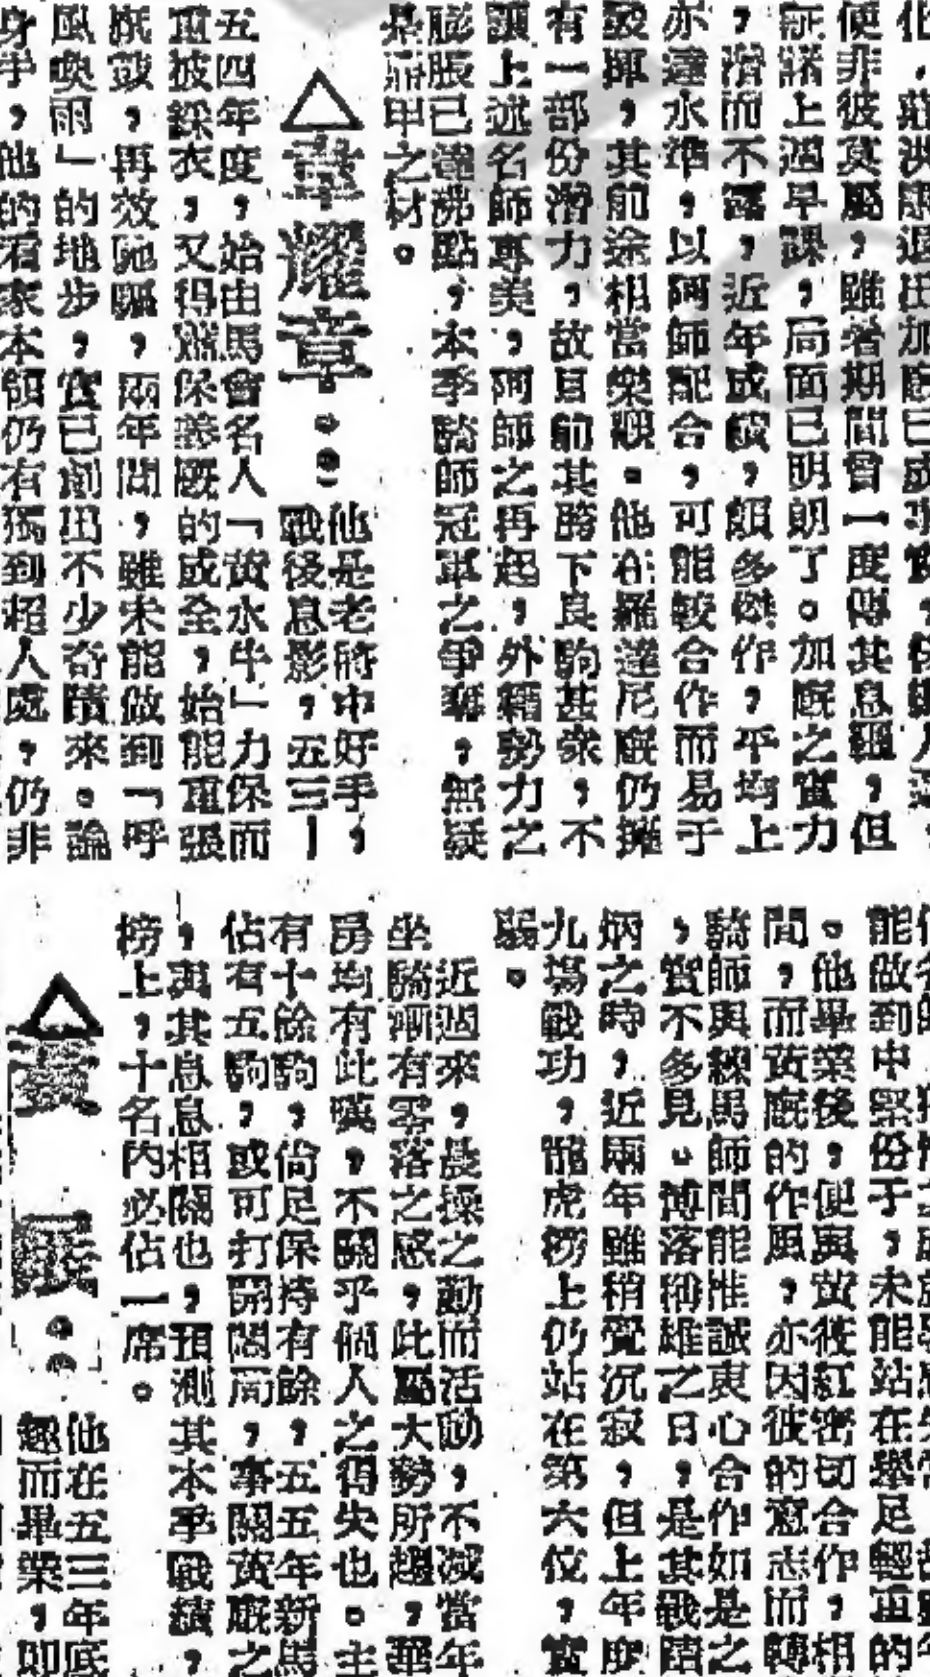 便非彼莫屬，雖者期間曾一度傳其息韁，但
症諸上週早課，局面已明朗了。加廐之實力
，滑而不露，近年成績，頗多傑作，平均上
亦達水準，以阿師配合，可能較合作而易于
發揮，其前途相當樂觀。他在羅達尼廐仍擁
有一部份潛力，故目前其胯下良駒甚衆，不
讓上述名師專美，阿師之再起，外籍勢力之
膨脹已達沸點，本季騎師冠軍之爭奪，無疑
是鼎甲之材。
△韋耀章：
他是老將中好手，
戰後息影，五三｜
五四年度，始由馬會名人「黄水牛」力保而
重披綵衣，又得騰保廐的成全，始能重張
旗鼓，再效馳驅，兩年間，雖未能做到「呼
風喚雨」的地步，實已創出不少奇蹟來。論
身手，他的看家本領仍有獨到超人處，仍非
能做到中堅份子，未能站在舉足輕重的
。他畢業後，便與黄筱紅密切合作，相
間，而黄廐的作風，亦因彼的意志而轉
騎師與練馬師間能推誠衷心合作如是之
，實不多見。博落稱雄之日，是其戰蹟
炳之時，近兩年雖稍覺沉寂，但上年度
九場戰功，龍虎榜上仍站在第六位，實
弱。
近週來，晨操之勤而活動，不減當年
坐騎漸有零落之感，此屬大勢所趨，華
房均有此嘆，不關乎個人之得失也。主
有十餘駒，尙足保持有餘，五五年新馬
佔有五駒，或可打開悶局，事關黄廐之
，與其息息相關也，預測其本季戰績，
榜上，十名內必佔一席。
他在五三年底
趣而畢業，即